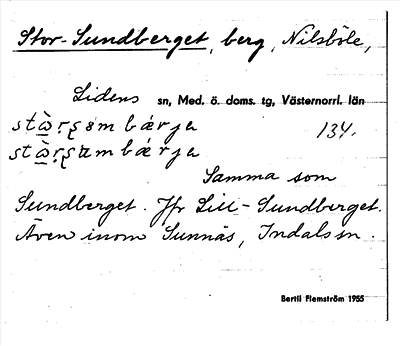 Stor-Sundberget, berg, Nilsböle,
Lidens sn, Med. ö. doms. tg, Västernorrl. län
134.
Samma som
Sundberget. Jfr Lill-Sundberget.
Även inom Sunnås, Indals sn.
Bertil Flemström 1955